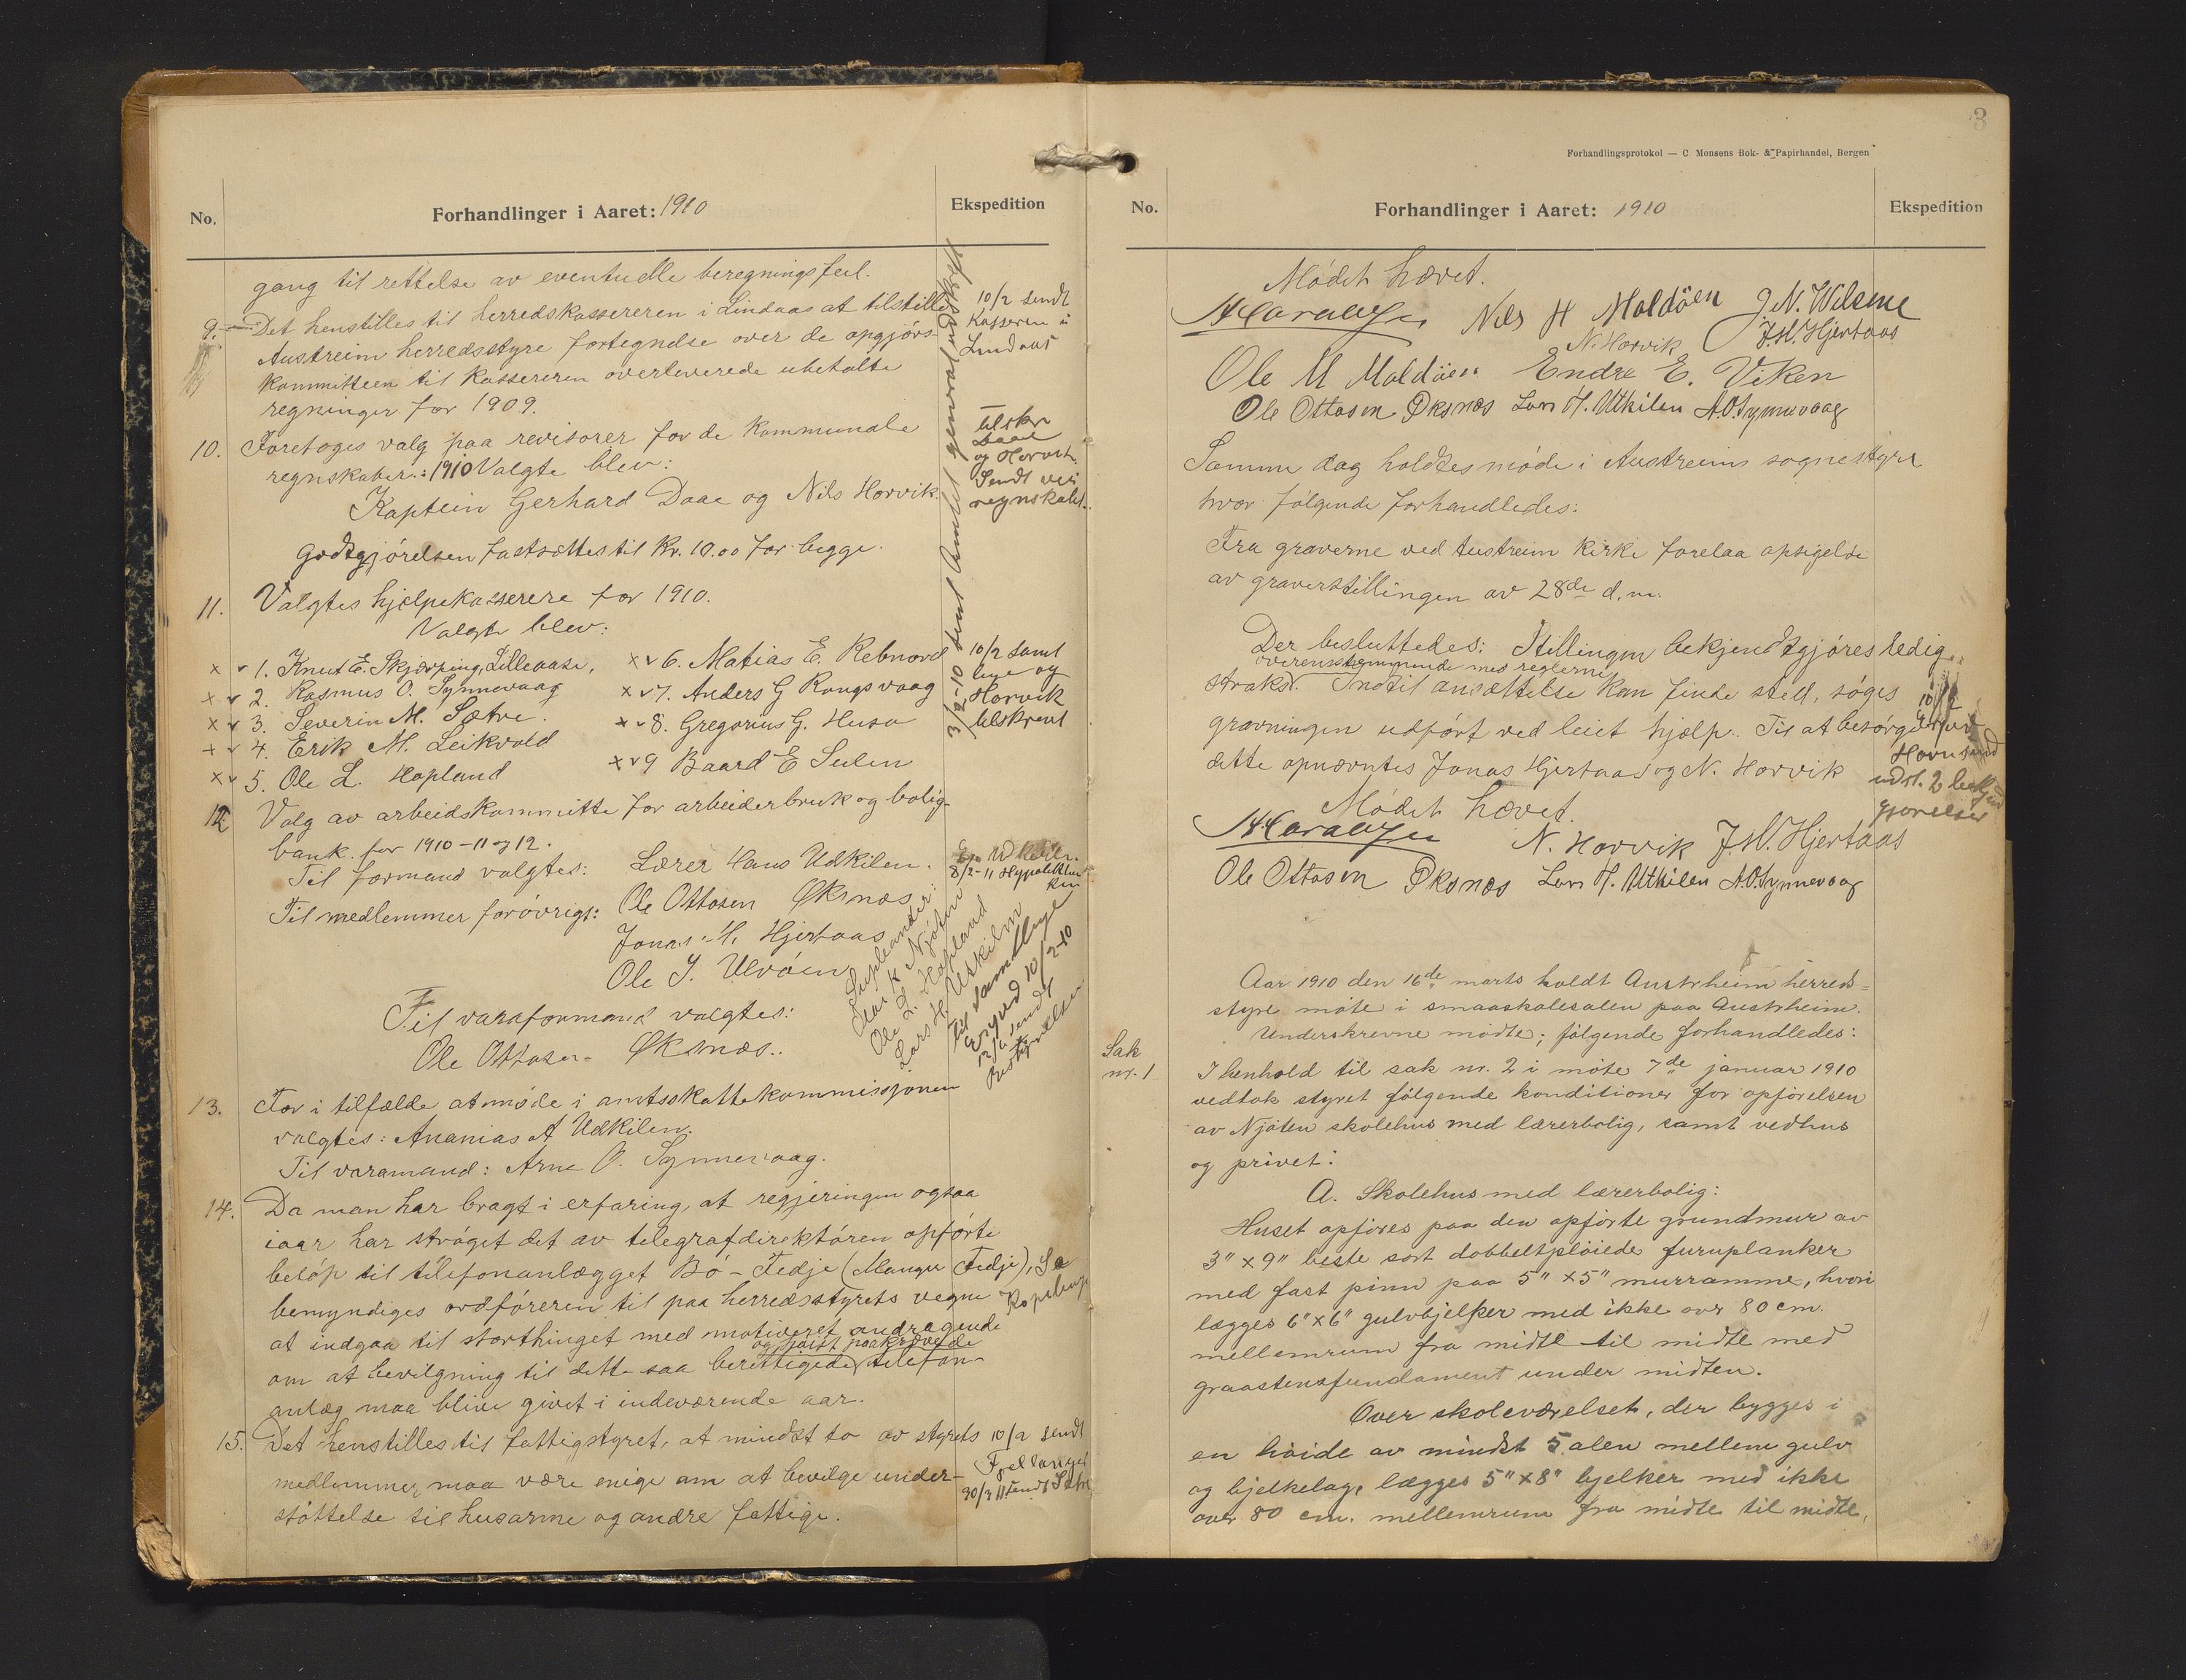 No.
Forhandlinger i Aaret: 1910
Ekspedition
gang til rettelse av eventuelle beregningsfeil.
9. Det henstilles til herredskassereren i Lindaas at tilstille
Austreim herredsstyre fortegnelse over de opgjörs-
kommitteen til kassereren overleverede ubetalte
regninger for 1909.
10/2 sendt
Kasseren i
Lindaas
10. Foretoges valg paa revisorer for de kommunale
regnskaber: 1910 Valgte blev:
Kaptein Gerhard Daae og Nils Horvik
Godtgjörelsen fastsættes til Kr. 10.00 for begge.
tilskr
Daae
og Horvik.
Sendt
regnskabet.
11. Valgtes hjælpekasserere for 1910.
Valgte blev:
x v 1. Knut E. Skjærping, Lilleaase,
x v 2. Rasmus O. Synnevaag
x v 3. Severin M. Sætre.
x v 4. Erik M. Leikvold
x v 5. Ole L. Hopland
x v 6. Matias E. Rebnord
x v 7. Anders G Rongsvaag
x v 8. Gregorius G. Husa
x v 9 Baard E Sulen
10/2 samt
lige og
Horvik
tilskrevet
12 Valg av arbeidskommitte for arbeiderbruk og bolig-
bank. for 1910-11 og 12.
Til formand valgtes: Lærer Hans Udkilen.
Til medlemmer forövrigt: Ole Ottosen Øksnæs
Jonas M. Hjertaas
Ole J. Ulvöen
Suplianter:
K Njöten
Ole L. Hopland
Lars H. Utkilen
8/2-11 Hypotekban
ken
Til samtlige
10/2-10
sendt
Til varaformand valgtes:
Ole Ottosen Øksnæs.
13. For i tilfælde at möde i amtsskattekommissjonen
valgtes: Ananias A Udkilen.
Til varamand: Arne O. Synnevaag.
14. Da man har bragt i erfaring, at regjeringen ogsaa
iaar har ströget det av telegrafdirektören opförte
belöp til telefonanlægget Bö - Fedje (Mangu Fedje), Se
bemyndiges ordföreren til paa herredsstyrets vegne Kopibup
at indgaa til storthinget med motiveret andragende
og höist paakrævede
om at bevilgning til dette saa berettigede telefon-
anlæg maa blive givet i indeværende aar.
15. Det henstilles til fattigstyret, at mindst to av styrets
medlemmer maa være enige om at bevilge under-
stöttelse til husarme og andre fattige.
10/2 sendt
Fjellanger
3
Forhandlingsprotokol — C. Monsens Bok- & Papirhandel, Bergen
No.
Forhandlinger i Aaret: 1910
Ekspedition
Mödet hævet.
Nils H Moldöen J. N. Wilsme
N. Horvik J. M. Hjertaas
Ole M Moldöen Endre E. Viken
Ole Ottosen Øksnæs Lars H. Utkilen A. O. Synnevaag
Samme dag holdtes möde i Austreims sognestyre
hvor fölgende forhandledes:
Fra graverne ved Austreim Kirke forelaa opsigelse
av graverstillingen av 28de d.m.
Der besluttedes: Stillingen bekjendtgjöres ledig
overensstemmende med reglerne
straks. Indtil ansættelse kan finde sted, söges
gravningen udfört ved leiet hjælp. Til at besörge
dette opnævntes Jonas Hjertaas og N. Horvik
Mödet hævet.
N. Horvik J. M. Hjertaas
Ole Ottosen Øksnæs Lars H. Utkilen A. O. Synnevaag
10/2
udst. 2 bekjendt
gjörelser
Aar 1910 den 16de marts holdt Austrheim herreds=
styre möte i smaaskolesalen paa Austrheim.
Underskrevne mödte; fölgende forhandledes:
Sak
nr. 1
I henhold til sak nr. 2 i möte 7de januar 1910
vedtok styret fölgende konditioner for opförelsen
av Njöten skolehus med lærerbolig, samt vedhus
og privet:
A. Skolehus med lærerbolig:
Huset opföres paa den opförte grundmur av
3" x 9" beste sort dobbeltplöiede furuplanker
med fast pinn paa 5" x 5" murramme, hvori
lægges 6" x 6" gulvbjelker med ikke over 80 cm.
mellemrum fra midte til midte med
graastensfundament under midten.
Over skoleværelset, der bygges i
en höide av mindst 5 alen mellem gulv
og bjelkelag, lægges 5" x 8" bjelker med ikke
over 80 cm. mellemrum fra midte til midte,